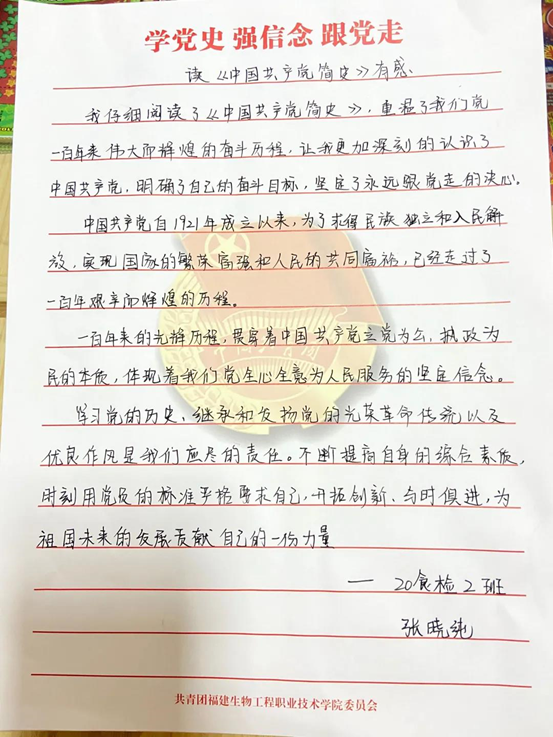 学党史 强信念 跟党走
读《中国共产党简史》有感
我仔细阅读了《中国共产党简史》，重温了我们党
一百年来伟大而辉煌的奋斗历程，让我更加深刻的认识了
中国共产党，明确了自己的奋斗目标，坚定了永远跟党走的决心。
中国共产党自1921年成立以来，为了求得民族独立和人民解
放，实现国家的繁荣富强和人民的共同富裕，已经走过了
一百年艰辛而辉煌的历程。
一百年来的光辉历程，贯穿着中国共产党立党为公，执政为
民的本质，体现着我们党全心全意为人民服务的坚定信念。
学习党的历史、继承和发扬党的光荣革命传统以及
优良作风是我们应尽的责任。不断提高自身的综合素质，
时刻用党员的标准严格要求自己，开拓创新、与时俱进，为
祖国未来的发展贡献自己的一份力量
— 20食检2班
张晓纯
共青团福建生物工程职业技术学院委员会